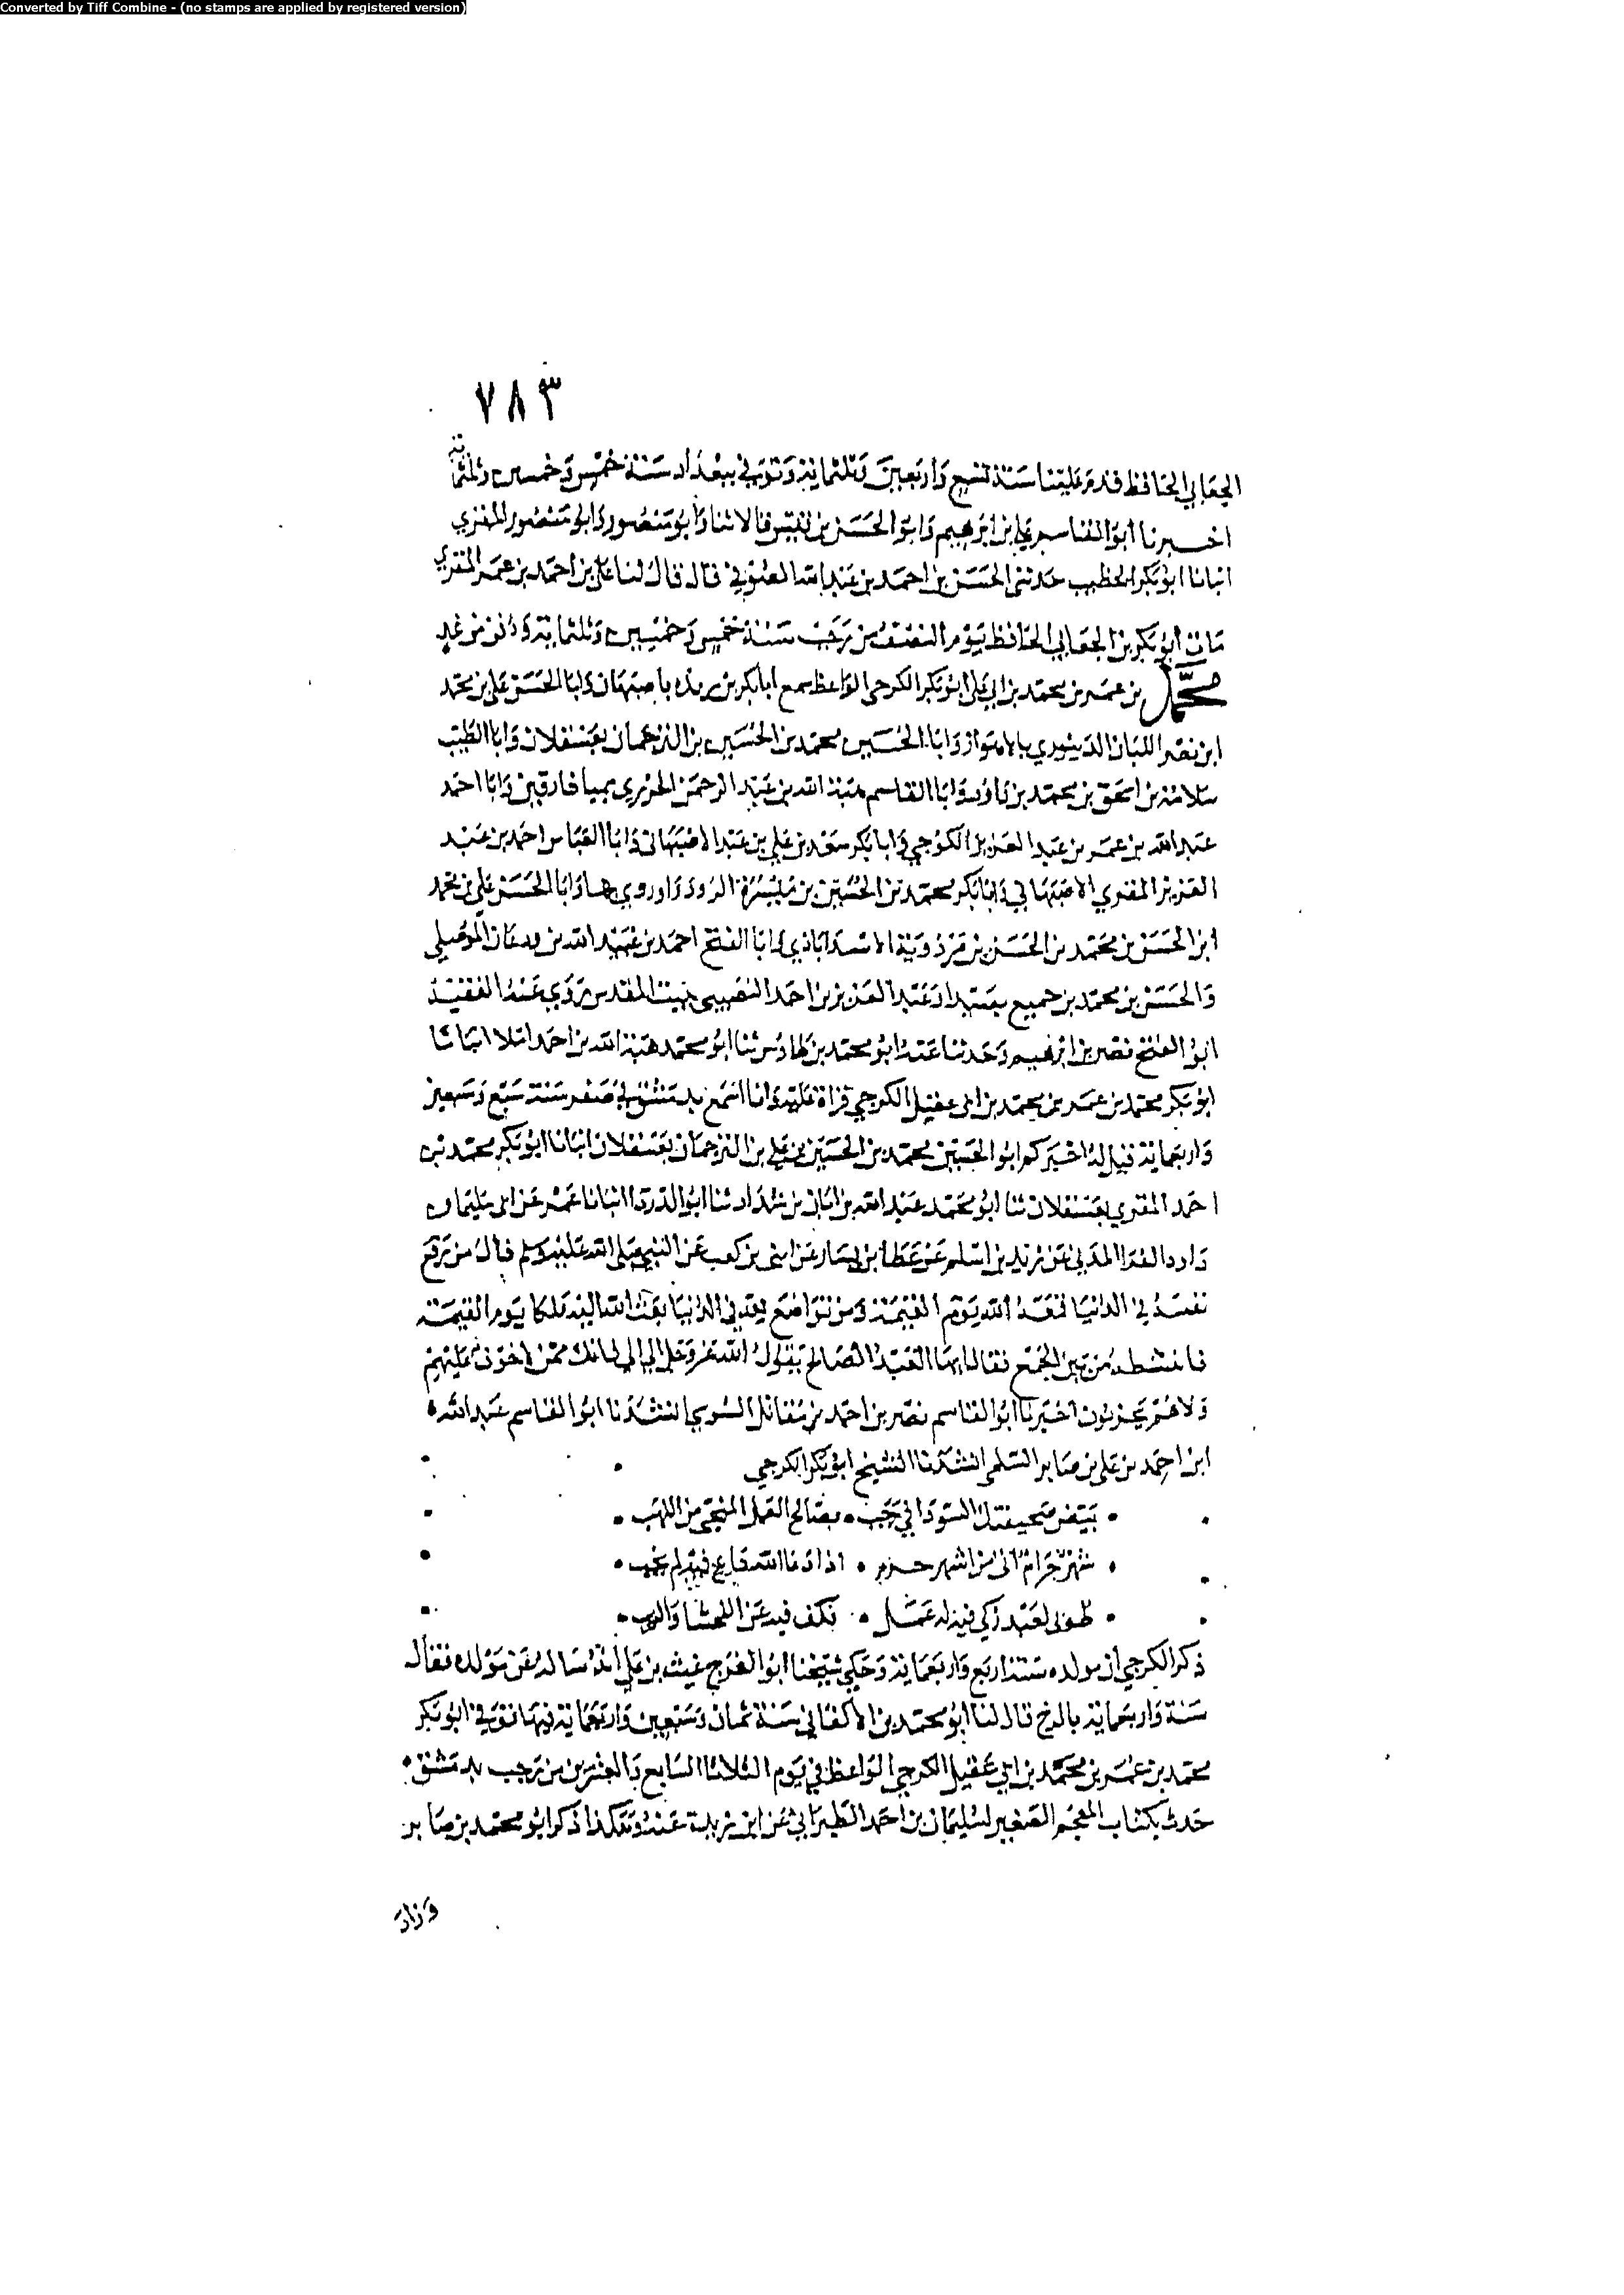 Converted by Tiff Combine - (no stamps are applied by registered version)
٧٨٣
الجعابي الحافظ قدم علينا سنة تسع وأربعين وثلثماية وتوفي ببغداد سنة خمس وخمسين وثلثماية
اخبرنا ابو القاسم علي بن ابرهيم وابو الحسن بن قبيس قالا ثنا وابو منصور المقري
انبانا ابو بكر الخطيب حدثني الحسن بن احمد بن عبد الله الصوفي قال قال لنا علي بن احمد بن عمر المقري
مات ابو بكر بن الجعابي الحافظ يوم النصف من رجب سنة خمس وخمسين وثلثماية ودفن من غد
محمد بن عمر بن محمد بن ابي عقيل ابو بكر الكرجي الواعظ سمع ابا بكر بن ريذه باصبهان وابا الحسن علي بن محمد
ابن نصر اللبان الدينوري بالاهواز وابا الحسين محمد بن الحسين بن الترجمان بعسقلان وابا الطيب
سلامة بن اسحق بن محمد بن داود وابا القاسم هبة الله بن عبد الرحمن الجزري بميافارقين وابا احمد
عبد الله بن عمر بن عبد العزيز الكرجي وابا بكر سعد بن علي بن عبد الاصبهاني وابا العباس احمد بن عبد
العزيز المقري الاصبهاني وابا بكر محمد بن الحسين بن ميسرة الروذراوري بها وابا الحسن علي بن محمد
ابن الحسن بن محمد بن الحسن بن مزدوية الاسداباذي وابا الفتح احمد بن عبيد الله بن ودعان الموصلي
والحسن بن محمد بن جميع بصيدا وعبد العزيز بن احمد النصيبي ببيت المقدس روي عنه الفقيه
ابو الفتح نصر بن ابرهيم وحدثنا عنه ابو محمد بن طاوس ثنا ابو محمد هبة الله بن احمد املا انبانا
ابو بكر محمد بن عمر بن محمد بن ابي عقيل الكرجي قراة عليه وانا اسمع بدمشق في صفر سنة سبع وسبعين
واربعماية قيل له اخبركم ابو الحسين محمد بن الحسين بن علي بن الترجمان بعسقلان انبانا ابو بكر محمد بن
احمد المقري بعسقلان ثنا ابو محمد عبد الله بن ابان بن شداد ثنا ابو الدردا انبانا عمر عن ابي سليمان
داود الفرا المدني عن زيد بن اسلم عن عطا بن يسار عن ابي بن كعب عن النبي صلى الله عليه وسلم قال من رفع
نفسه في الدنيا قمعه الله يوم القيمة ومن تواضع لله في الدنيا بعث الله اليه ملكا يوم القيمة
فانتشطه من بين الجمع فقال ايها العبد الصالح يقول الله عز وجل الي الي فانك ممن لا خوف عليهم
ولا هم يحزنون اخبرنا ابو القاسم نصر بن احمد بن مقاتل السوسي انشدنا ابو القاسم عبد الله
ابن احمد بن علي بن صابر السلمي انشدنا الشيخ ابو بكر الكرجي
بيض صحيفتك السودا في رجب بصالح العمل المنجي من اللهب
شهر حرام اتى من اشهر حرم اذا دعا الله داع فيه لم يخب
طوبى لعبد زكي فيه له عمل فكف فيه عن الفحشا والريب
ذكر الكرجي ان مولده سنة اربع واربعماية وحكي شيخنا ابو الفرج غيث بن علي انه ساله عن مولده فقال
سنة واربعماية بالكرج قال لنا ابو محمد بن الاكفاني سنة ثمان وسبعين واربعماية فيها توفي ابو بكر
محمد بن عمر بن محمد بن ابي عقيل الكرجي الواعظ في يوم الثلاثا السابع والعشرين من رجب بدمشق
حدث بكتاب المعجم الصغير لسليمان بن احمد الطبراني عن ابن ريذة عنه وهكذا ذكر ابو محمد بن صابر
وزاد